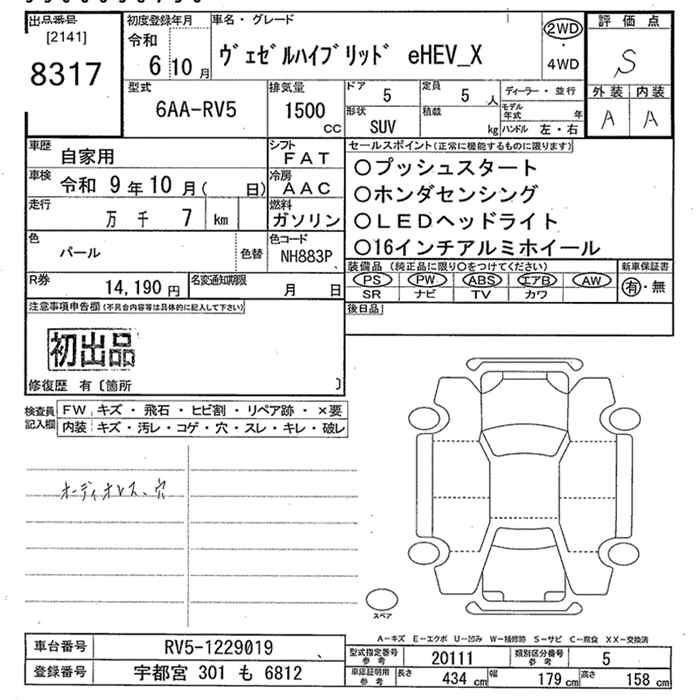 出品番号
[2141]
8317
初度登録年月
令和
6 10 月
車名・グレード
ヴェゼルハイブリッド eHEV_X
2WD
・
4WD
評価点
S
外装 内装
A A
型式
6AA-RV5
排気量
1500
CC
ドア
5
定員
5 人
形状
SUV
積載
kg
ディーラー・並行
モデル
年式 年
ハンドル 左・右
車歴
自家用
シフト
FAT
車検
令和 9 年 10 月 ( 日)
冷房
AAC
走行
万 千 7 km
燃料
ガソリン
色
パール
色替
色コード
NH883P
R券
14,190 円
名変通知期限
月 日
セールスポイント(正常に機能するものに限ります)
○プッシュスタート
○ホンダセンシング
○LEDヘッドライト
○16インチアルミホイール
装備品 (純正品に限り○をつけてください)
PS PW ABS エアB AW
SR ナビ TV カワ
新車保証書
有・無
後日品
注意事項申告欄(不具合内容等は具体的に記入して下さい)
初出品
修復歴 有〔箇所 〕
検査員
記入欄
FW キズ・飛石・ヒビ割・リペア跡・×要
内装 キズ・汚レ・コゲ・穴・スレ・キレ・破レ
オーディオレス、穴
スペア
A－キズ E－エクボ U－凹み W－補修跡 S－サビ C－腐食 XX－交換済
車台番号 RV5-1229019
登録番号 宇都宮 301 も 6812
型式指定番号
参考
20111
類別区分番号
参考
5
車庫証明用
参考
長さ 434 cm 幅 179 cm 高さ 158 cm